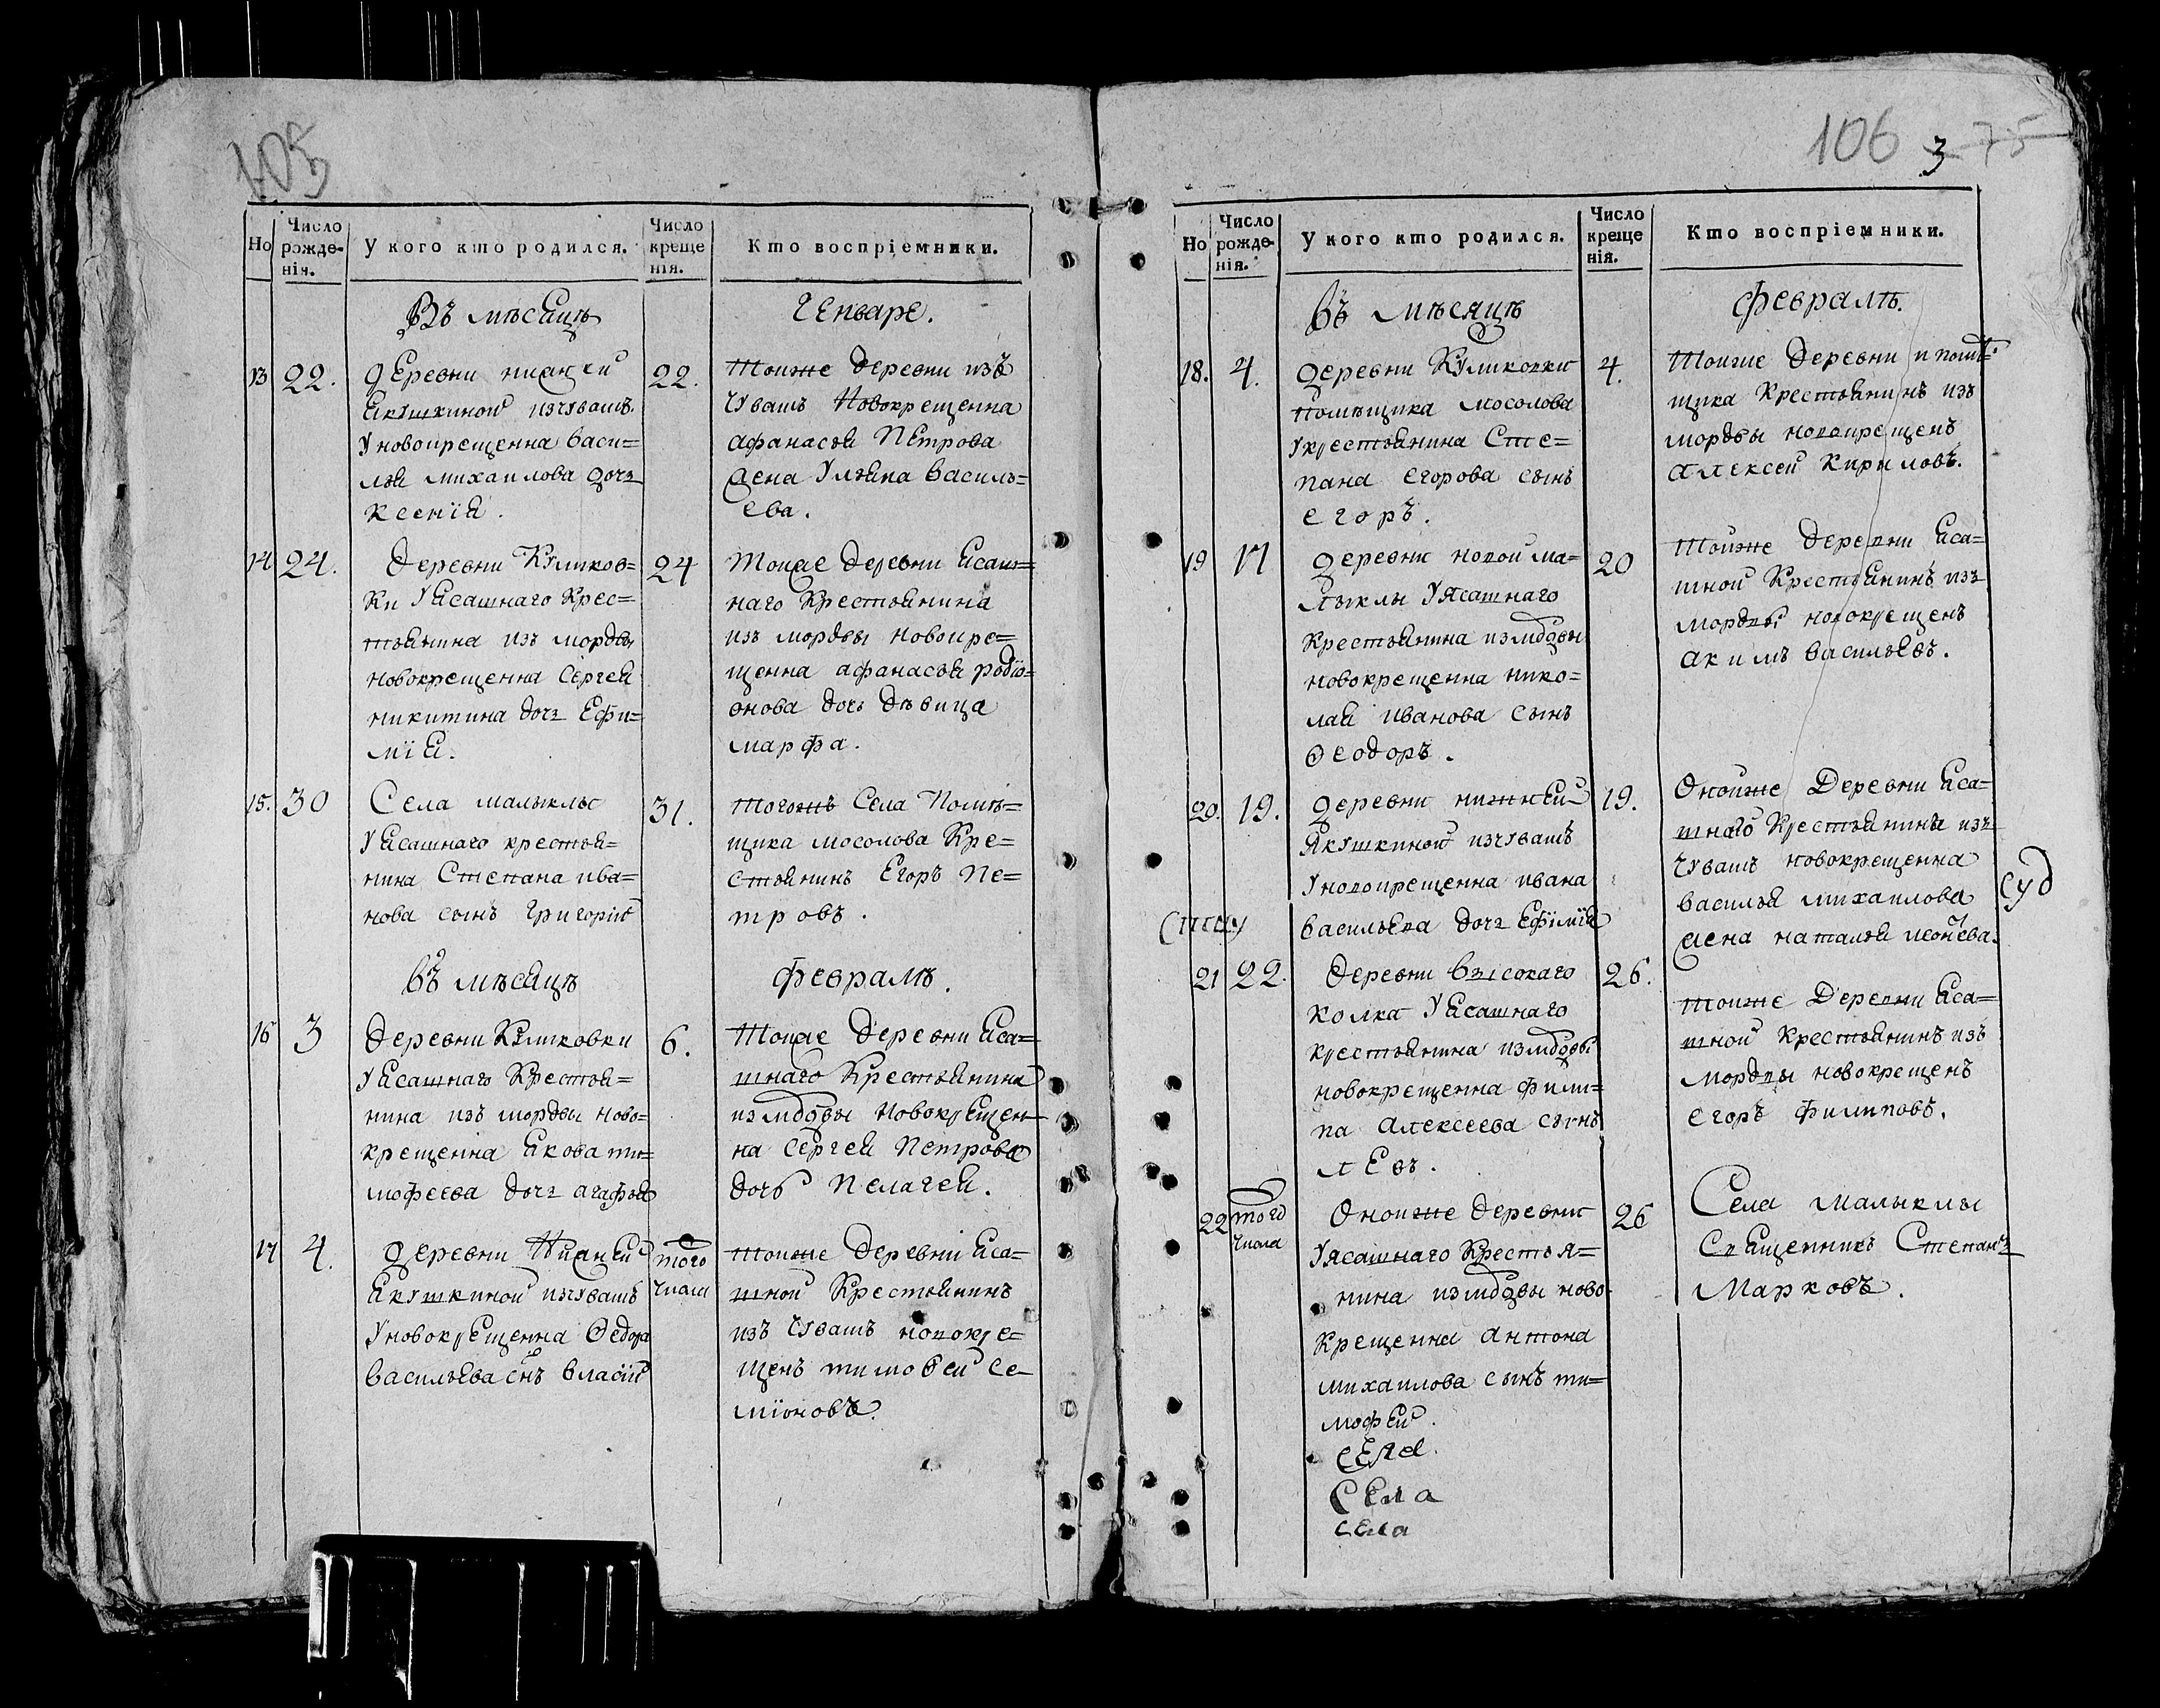 105
Но
Число рожде-нія.
У кого кто родился.
Число креще нія.
Кто воспріемники.
Въ мѣсяцѣ
Генваре.
13
22.
деревни нижнеи
якушкинои изчувашъ
у новокрещенна васи=
лья михаилова дочь
ксенія.
22.
тоиже деревни изъ
чувашъ новокрещенна
афанасья Петрова
жена Ульяна василь=
ева.
14
24.
деревни Куликов=
ки у ясашнаго крес=
тьянина изъ мордвы
новокрещенна Сергея
никитина дочь Ефи=
мія.
24
тоиже деревни ясаш=
наго крестьянина
изъ мордвы новокре=
щенна афанасья родіо=
онова дочь дѣвица
марфа.
15.
30
Села малыклы
у ясашнаго крестья=
нина Степана ива=
нова сынъ григорій
31.
тогожъ Села Помѣ=
щика мосолова Кре=
стьянинъ Егоръ Пе=
тровъ.
въ мѣсяцѣ
февралѣ.
16
3
деревни Куликовки
у ясашнаго Крестья=
нина изъ мордвы ново=
крещенна якова ти=
мофеева дочь агафья
6.
Тоиже деревни яса=
шнаго Крестьянина
из мордвы новокрещен
на Сергея Петрова
дочь Пелагея.
17
4.
деревни Нижнеи
якушкинои изчувашъ
у новокрещенна Федора
васильева снъ власій
того
числа
тоиже деревни яса=
шнои Крестьянинъ
изъ чувашъ новокре=
щенъ тимоѳеи се=
міоновъ.
106
3
75
Но
Число рожде-нія.
У кого кто родился.
Число креще нія.
Кто воспріемники.
въ мѣсяцѣ
февралѣ.
18.
4.
деревни Куликовки
помѣщика мосолова
у крестьянина Сте=
пана егорова сынъ
егоръ.
4.
тоиже деревни и помѣ-
щика Крестьянинъ изъ
мордвы новокрещенъ
алексеи Кириловъ.
19
17
деревни новои ма=
лыклы у ясашнаго
Крестьянина из мордвы
новокрещенна нико=
лая иванова сынъ
Ѳеодоръ.
20
тоиже деревни яса=
шнои Крестьянинъ изъ
мордвы новокрещенъ
акимъ васильевъ.
20.
19.
деревни нижнеи
якушкинои изчувашъ
у новокрещенна ивана
васильева дочь ефимія
19.
Оноиже деревни яса=
шнаго Крестьянина изъ
чувашъ новокрещенна
василья михаилова
жена наталья леонтева.
суд
21
22.
деревни высокаго
колка у ясашнаго
крестьянина из мордвы
новокрещенна фили=
па Алексеева сынъ
левъ.
26.
тоиже деревни яса=
шнои крестьянинъ изъ
мордвы новокрещенъ
егоръ филиповъ.
22
того
числа
Оноиже деревни
у ясашнаго крестья=
нина из мордвы ново
крещенна антона
михаилова сынъ ти=
мофеи.
26
Села малыклы
Священникъ Степанъ
Марковъ.
села.
села
села